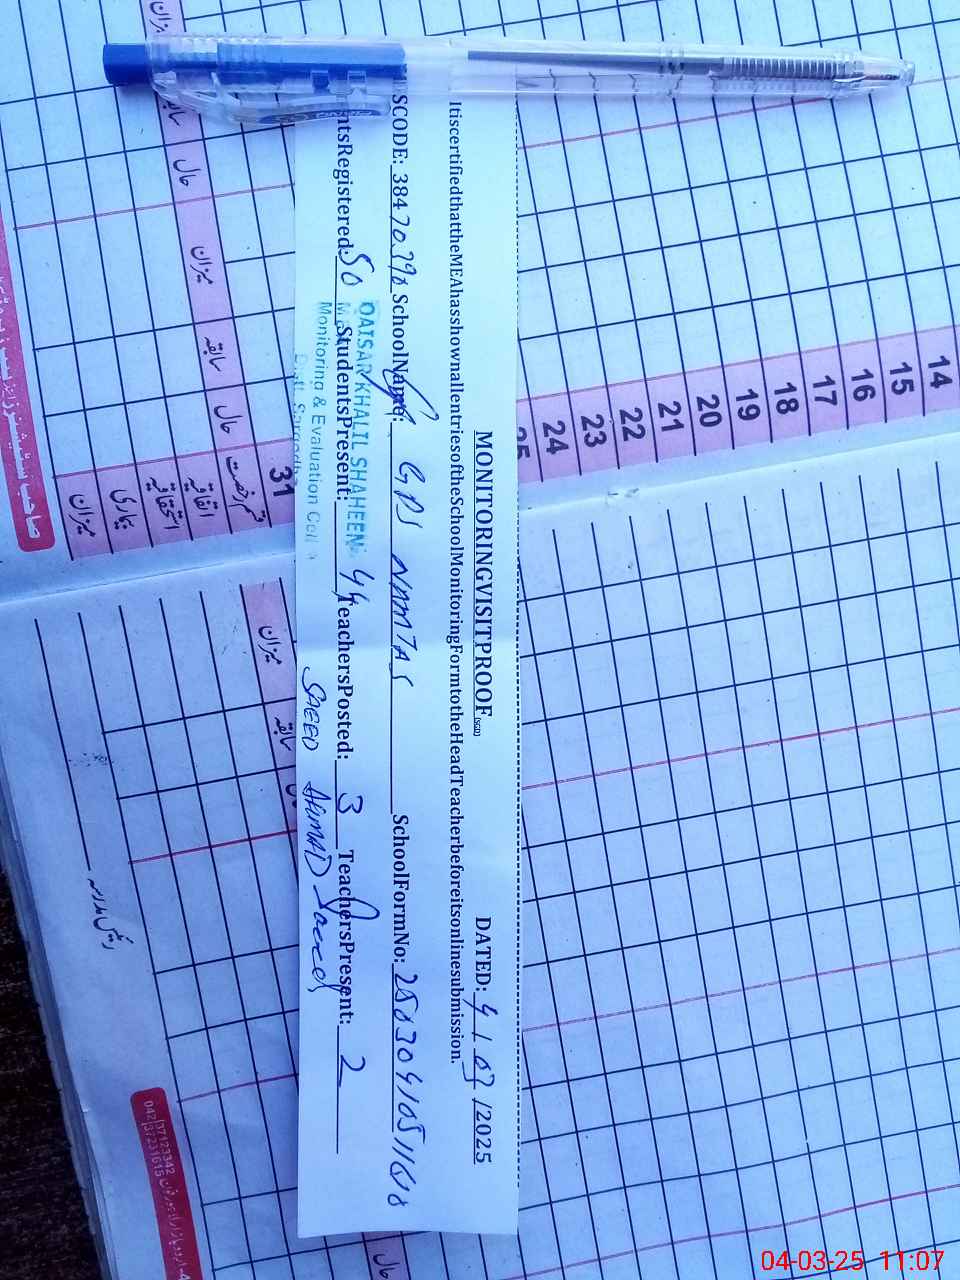 MONITORINGVISITPROOF(SGD) DATED: 4 / 03 /2025
ItiscertifiedthattheMEAhasshownallentriesoftheSchoolMonitoringFormtotheHeadTeacherbeforeitsonlinesubmission.
SCODE: SchoolName: GPS SchoolFormNo:
ntsRegistered: 50 StudentsPresent: 44 TeachersPosted: 3 TeachersPresent: 2
QAISAR KHALIL SHAHEEN
Monitoring & Evaluation Cell
Distt. Sargodha
SAEED AHMAD Saeed
14
15
16
17
18
19
20
21
22
23
24
25
31
میزان
سابقہ
حال
میزان
سابقہ
حال
قسم رخصت
اتفاقیہ
استحقاقیہ
بیماری
میزان
میزان
سابقہ
رئیس مدرسہ
حال
042 37123342
37231615
04-03-25 11:07